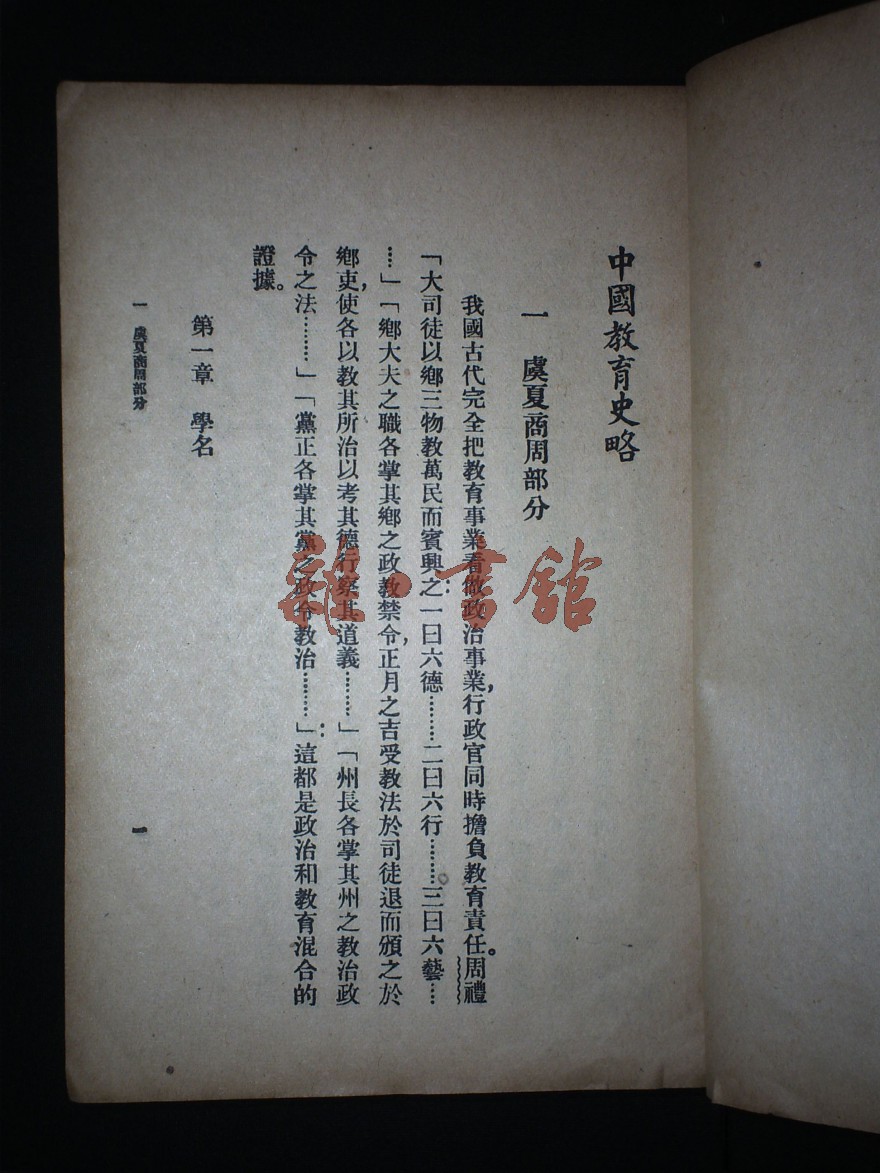 中國教育史略
一　虞夏商周部分
我國古代完全把教育事業看做政治事業，行政官同時擔負教育責任。周禮
「大司徒以鄉三物教萬民而賓興之：一曰六德………二曰六行………三曰六藝…
…」「鄉大夫之職各掌其鄉之政教禁令，正月之吉受教法於司徒退而頒之於
鄉吏，使各以教其所治以考其德行察其道義………」「州長各掌其州之教治政
令之法………」「黨正各掌其黨之政令教治………」：這都是政治和教育混合的
證據。
第一章　學名
一　虞夏商周部分
一
雜·書館